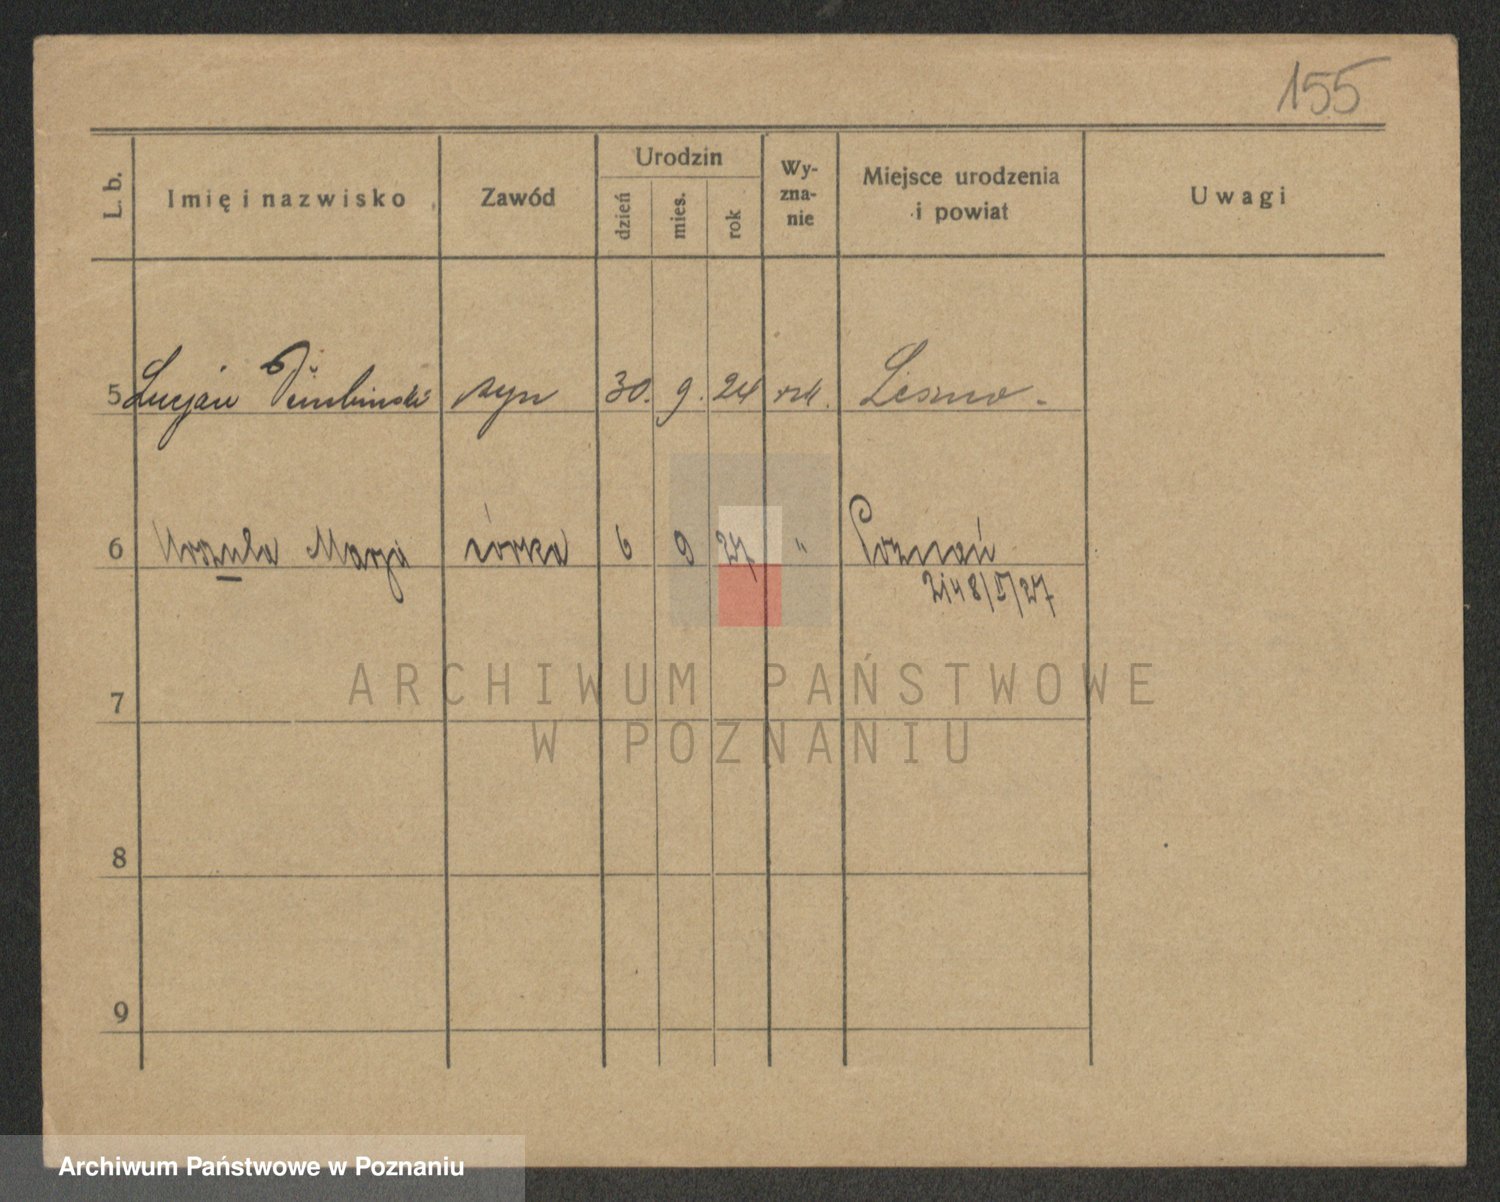 155
L. b.
Imię i nazwisko
Zawód
Urodzin
dzień
mies.
rok
Wy-
zna-
nie
Miejsce urodzenia
i powiat
Uwagi
5 Lucjan syn 30. 9. 24 rzk. Leszno.
6 Urszula Marja córka 6 9 27 " Poznań
2148/5/27
7
8
9
ARCHIWUM PAŃSTWOWE
W POZNANIU
Archiwum Państwowe w Poznaniu